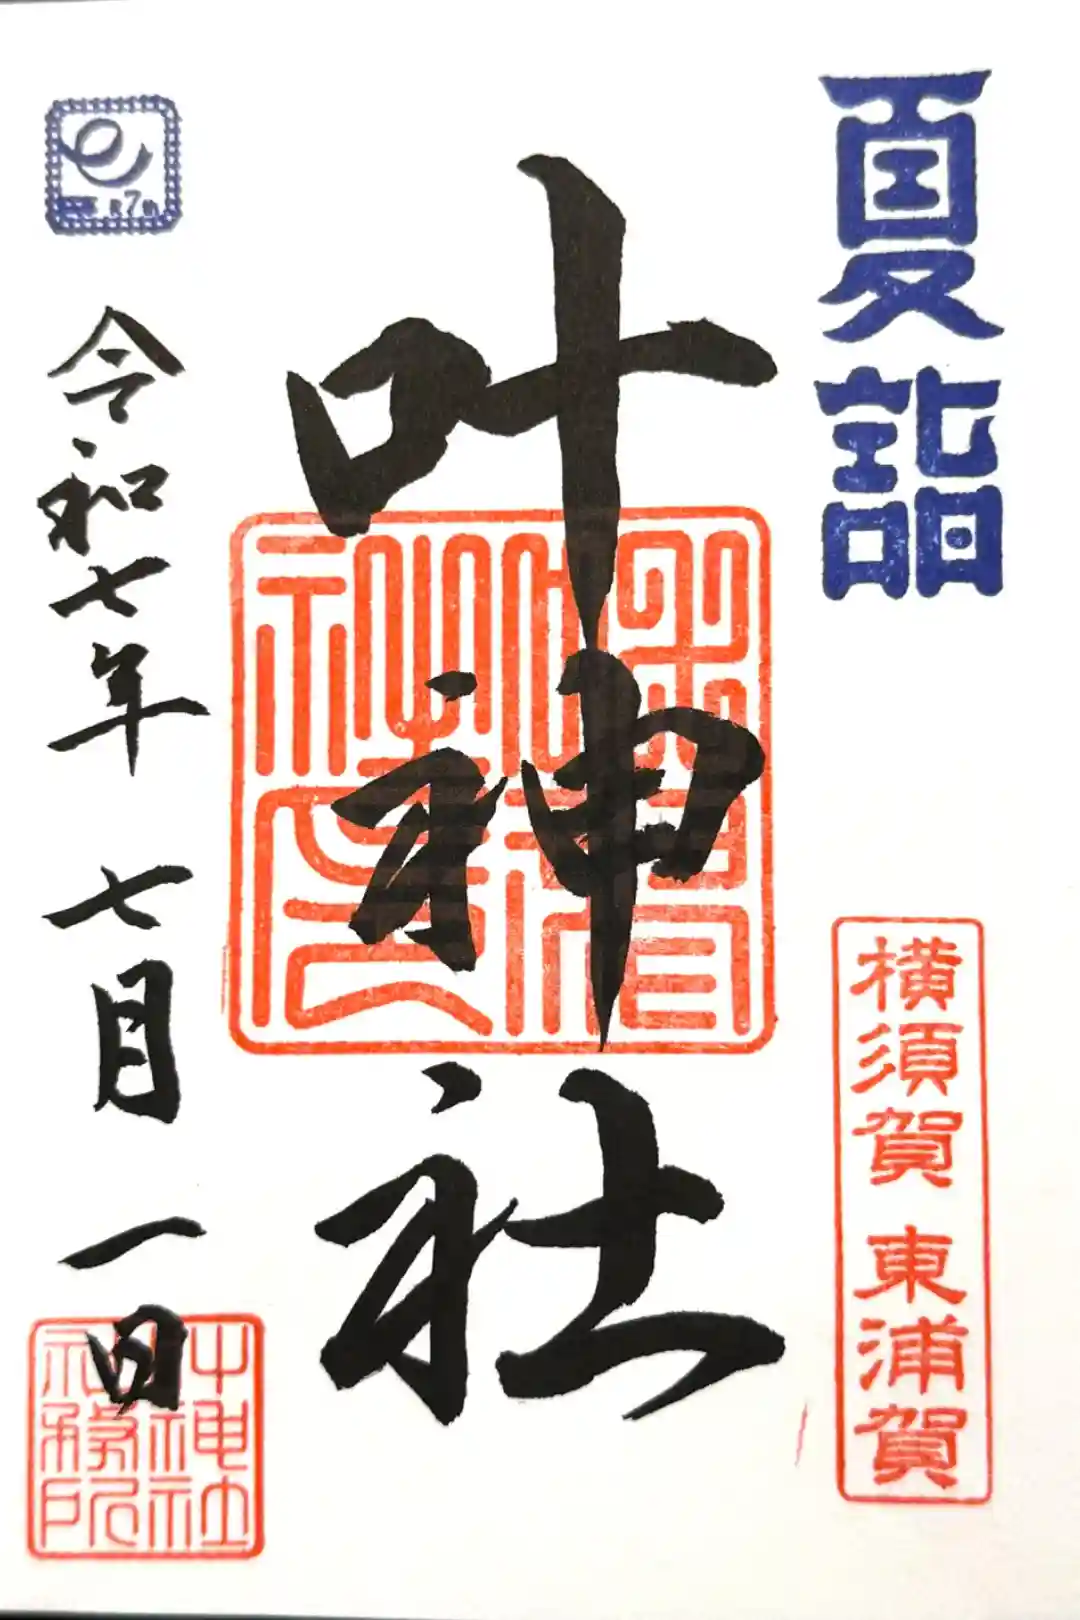 夏詣
横須賀 東浦賀
叶神社
令和七年 七月 一日
叶神社
社務所